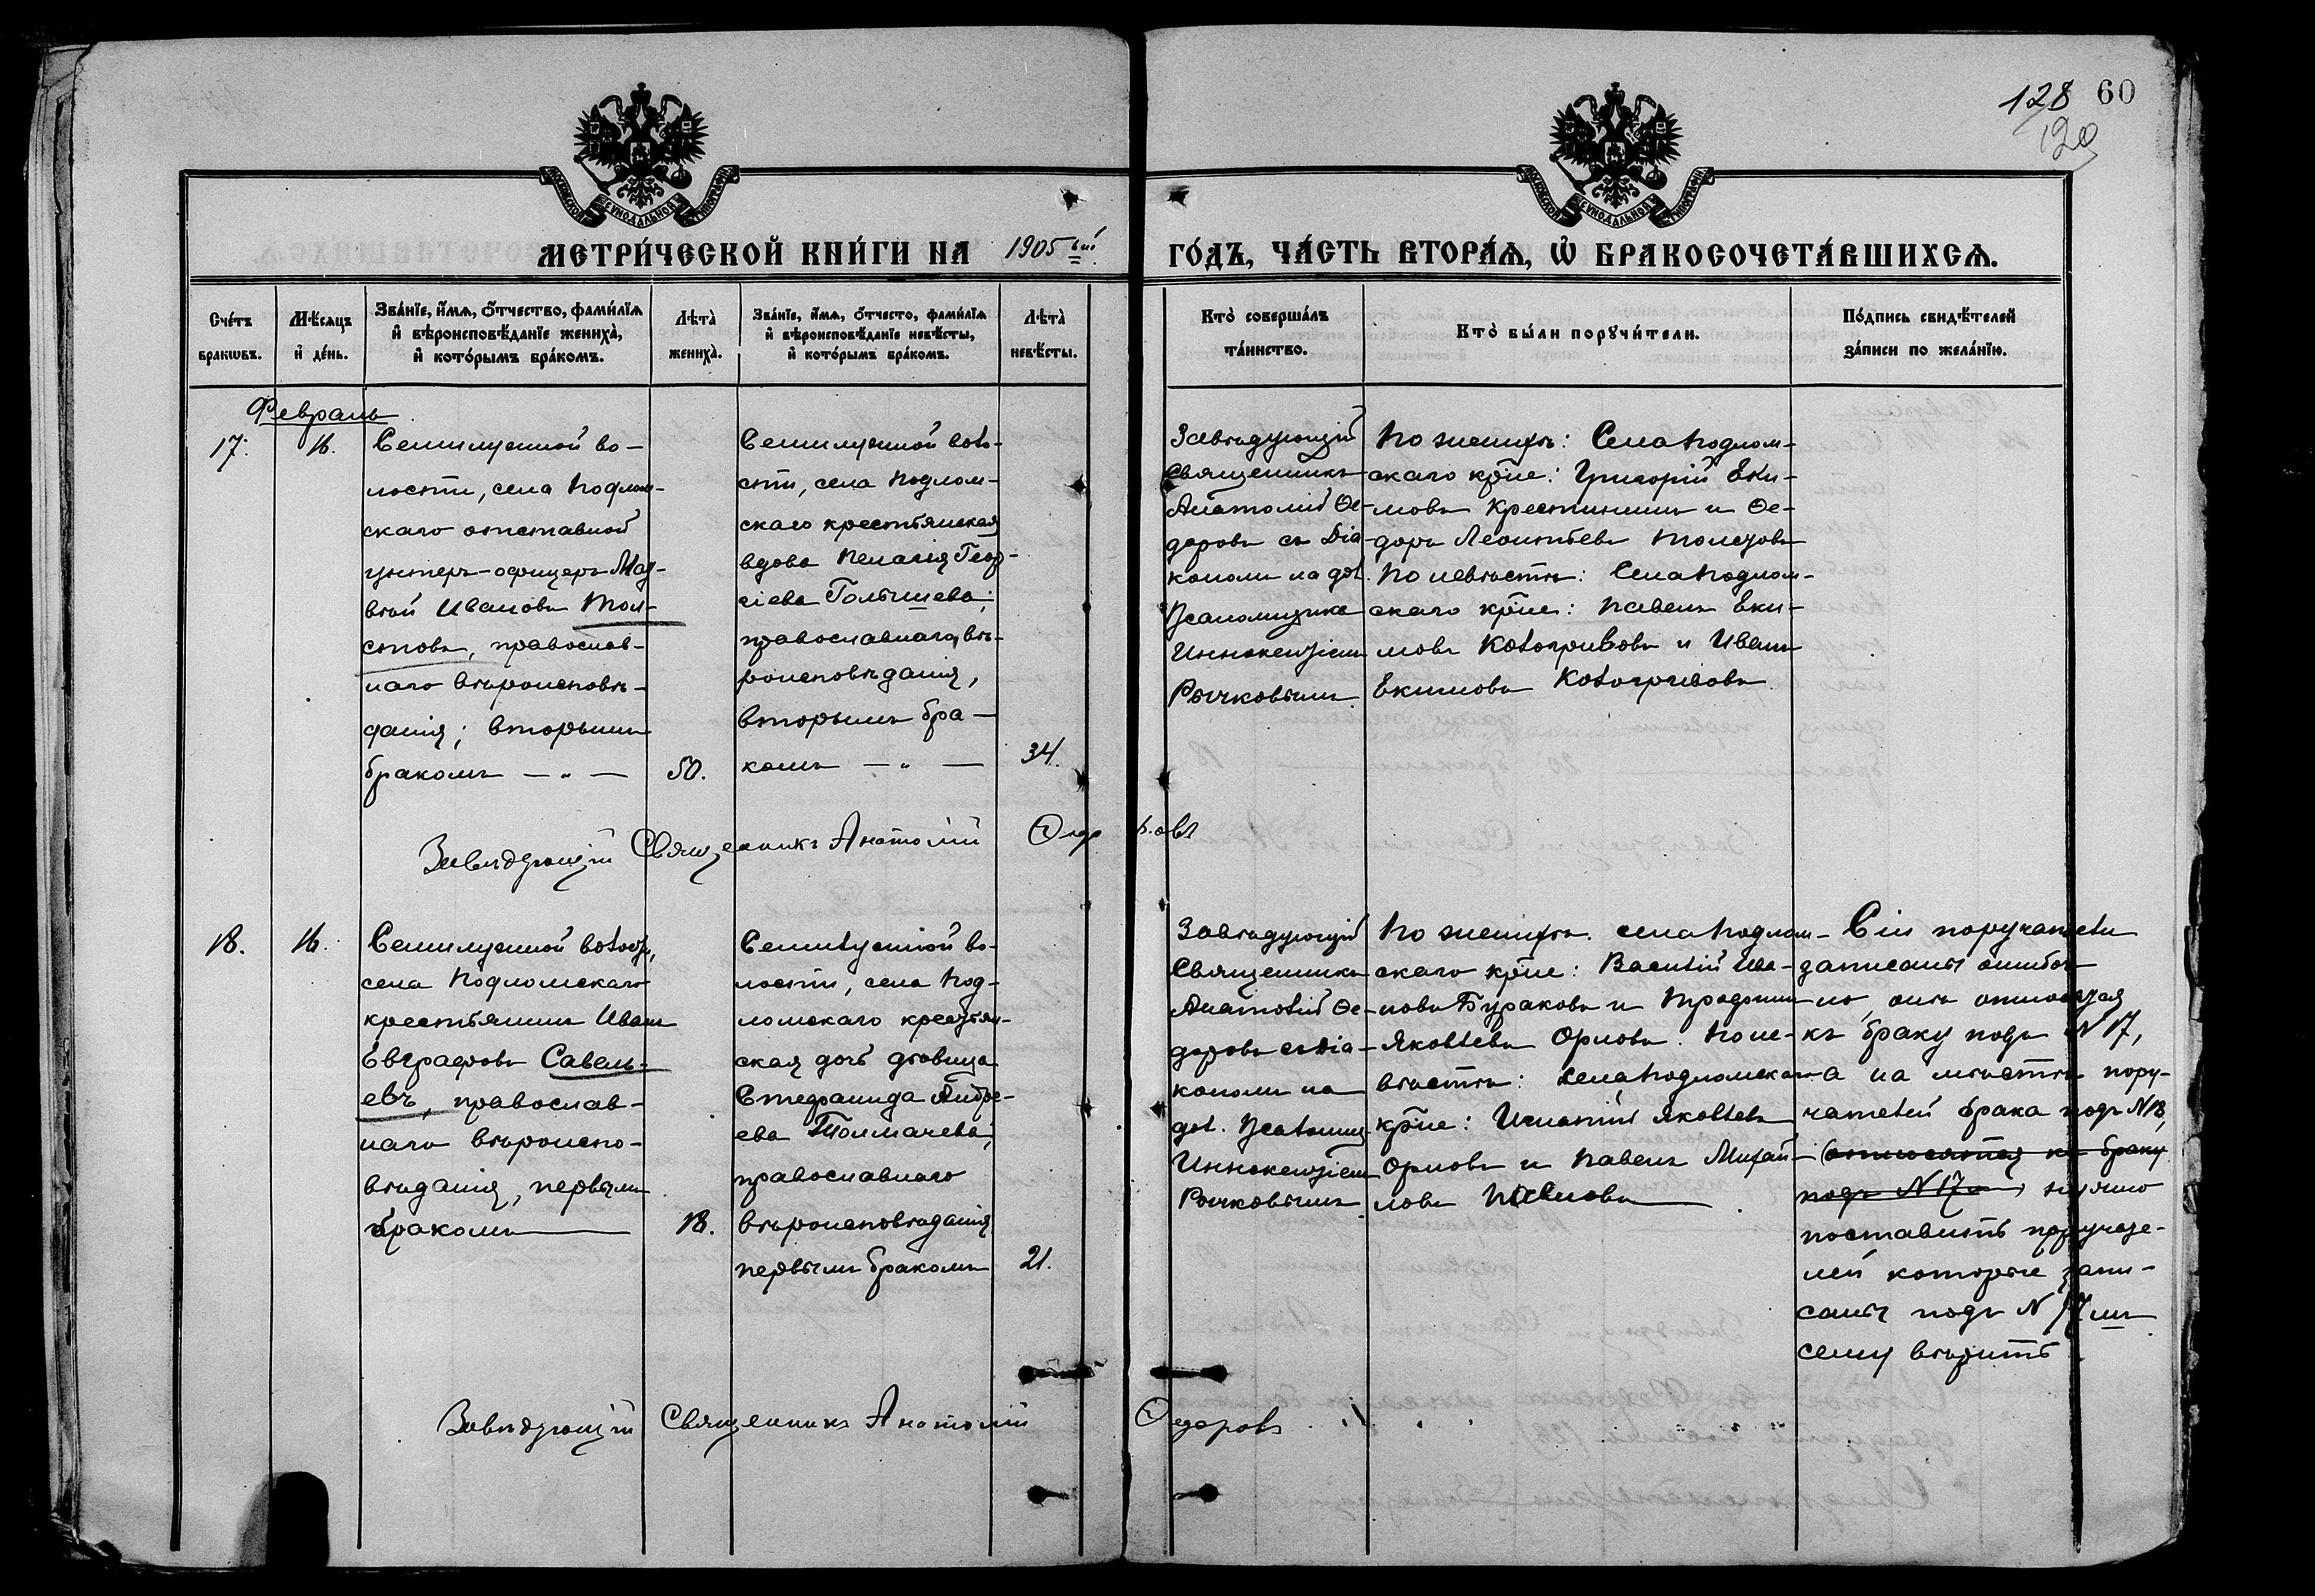 128 60
120
МОСКОВСКОЙ СѴНОДАЛЬНОЙ ТИПОГРАФІИ
МОСКОВСКОЙ СѴНОДАЛЬНОЙ ТИПОГРАФІИ
МЕТРИ́ЧЕСКОЙ КНИ́ГИ НА 1905ый
ГО́ДЪ, ЧА́СТЬ ВТОРА́Ѧ, Ѽ БРАКОСОЧЕТА́ВШИХСѦ.
Сче́тъ
браковъ.
Мѣ́сѧцъ
и҆ де́нь.
Зва́нїе, и҆́мѧ, о҆́тчество, фами́лїѧ
и҆ вѣроисповѣ́данїе жениха̀,
и҆ кото́рымъ бра́комъ.
Лѣта̀
жениха̀.
Зва́нїе, и҆́мѧ, о҆́тчесто, фами́лїѧ
и҆ вѣроисповѣ́данїе невѣ́сты,
и҆ кото́рымъ бра́комъ.
Лѣта̀
невѣ́сты.
Кто̀ соверша́лъ
та́инство.
Кто̀ бы́ли порꙋчи́тели.
По́дпись свидѣ́телей
за́писи по жела́нїю.
Февраль
17.
16.
Семилужной во-
лости, села Подлом-
скаго отставной
унтеръ-офицеръ Мат-
вѣй Ивановъ Тол-
стовъ, православ-
наго вѣроисповѣ-
данія; вторымъ
бракомъ — „ —
50.
Семилужной воло-
сти, села Подлом-
скаго крестьянская
вдова Пелагія Геор-
гіева Голышева;
православнаго вѣ-
роисповѣданія,
вторымъ бра-
комъ — „ —
34.
Завѣдующій
Священникъ
Анатолій Ѳе-
доровъ съ Діа-
кономъ на дол.
Псаломщика
Иннокентіемъ
Рычковымъ.
По женихѣ: Села Подлом-
скаго кр̃не: Григорій Еки-
мовъ Крестининъ и Ѳе-
доръ Леонтьевъ
По невѣстѣ: Села Подлом-
скаго кр̃не: Павелъ Еки-
мовъ Кологривовъ и Иванъ
Екимовъ Кологривовъ.
Завѣдующій Священникъ Анатолій Ѳедоровъ
18.
16.
Семилужной волости,
села Подломскаго
крестьянинъ Иванъ
Евграфовъ Савель-
евъ, православ-
наго вѣроиспо-
вѣданія, первымъ
бракомъ —
18.
Семилужной во-
лости, села Под-
ломскаго крестьян-
ская дочь дѣвица
Стефанида Андре-
ева Толмачева;
православнаго
вѣроисповѣданія
первымъ бракомъ
21.
Завѣдующій
Священникъ
Анатолій Ѳе-
доровъ съ Діа-
кономъ на
дол. Псаломщ.
Иннокентіемъ
Рычковымъ.
По женихѣ. села Подлом-
скаго кр̃не: Василій Ива-
новъ Бураковъ и Трофимъ
Яковлевъ Орловъ. По не-
вѣстѣ: села Подломскаго
кр̃не: Игнатій Яковлевъ
Орловъ и Павелъ Михай-
ловъ Павловъ —
Сіи поручатели
записаны ошибоч-
но, они относятся
къ браку подъ N 17,
а на мѣсто пору-
чателей брака подъ N 18,
(относятся къ браку
подъ N 17 нужно
поставить поручате-
лей которые запи-
саны подъ N 17мъ
сему вѣрить.
Завѣдующій Священникъ Анатолій Ѳедоровъ